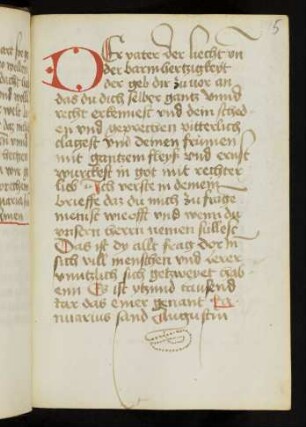 5
DEr vater der liecht vn
der barmhertzigkeyt
der geb dir zuuor an
das du dich selber gantz vnnd
recht erkennest vnd dein sched
en vnd geprechen pitterlich
clagest vnd deinen frumen
mit gantzem fleyß vnd ernst
wurckest in got mit rechter
lieb Ich verste in deinem
brieffe daz du mich zu frage
menist wie offt vnd wenn du
vnsern herrn nemen süllest
Das ist dy allt frag dor in
sich vill menschen vnd lerer
vnnutzlich sich getzweyet hab
enn Es ist ytzund tausend
iar das einer genant Ia
nuarius sand Augustin